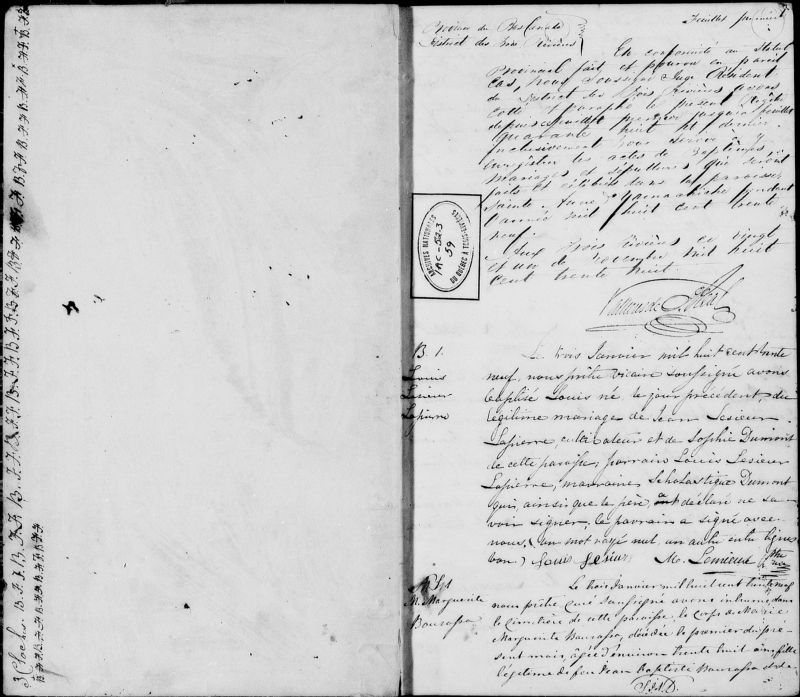 3 Cloches. B.F.F.
Province du Bas Canada
District des Trois Rivières
Feuillet premier
En conformité au Statut
Provincial fait et pourvu en pareil
cas, nous soussigné Juge Résident
du District des Trois Rivières avons
coté et paraphé le présent
depuis premier jusqu'au feuillet
quarante huit et dernier
inclusivement pour servir à
enregistrer les actes de Baptêmes,
mariages et sépultures qui seront
faits et célébrés dans la paroisse
Sainte Anne d'Yamachiche pendant
l'année mil huit cent trente
neuf.
Aux Trois Rivières ce vingt
et un de novembre mil huit
cent trente huit.
ARCHIVES NATIONALES
DU QUÉBEC À TROIS-RIVIÈRES
1AC-52.3
59
Vallières de St Réal
B. 1.
Louis
Lesieur
Lapierre
Le trois Janvier mil huit cent trente
neuf, nous prêtre vicaire soussigné avons
baptisé Louis né le jour précédent du
légitime mariage de Jean Lesieur
Lapierre, cultivateur et de Sophie Dumont
de cette paroisse; parrain Louis Lesieur
Lapierre, marraine Scholastique Dumont
qui, ainsi que le père, a déclaré ne sa
voir signer, le parrain a signé avec
nous. (un mot rayé nul, un autre entre lignes
bon.) Louis Lesieur M. Lemieux Ptre
S. 1
M. Marguerite
Bourassa
Le trois Janvier mil huit cent trente neuf
nous prêtre curé soussigné avons inhumé dans
le cimetière de cette paroisse, le corps de Marie
Marguerite Bourassa, décédée le premier du pré
sent mois, agée d'environ trente huit ans, fille
légitime de feu Jean Baptiste Bourassa et de